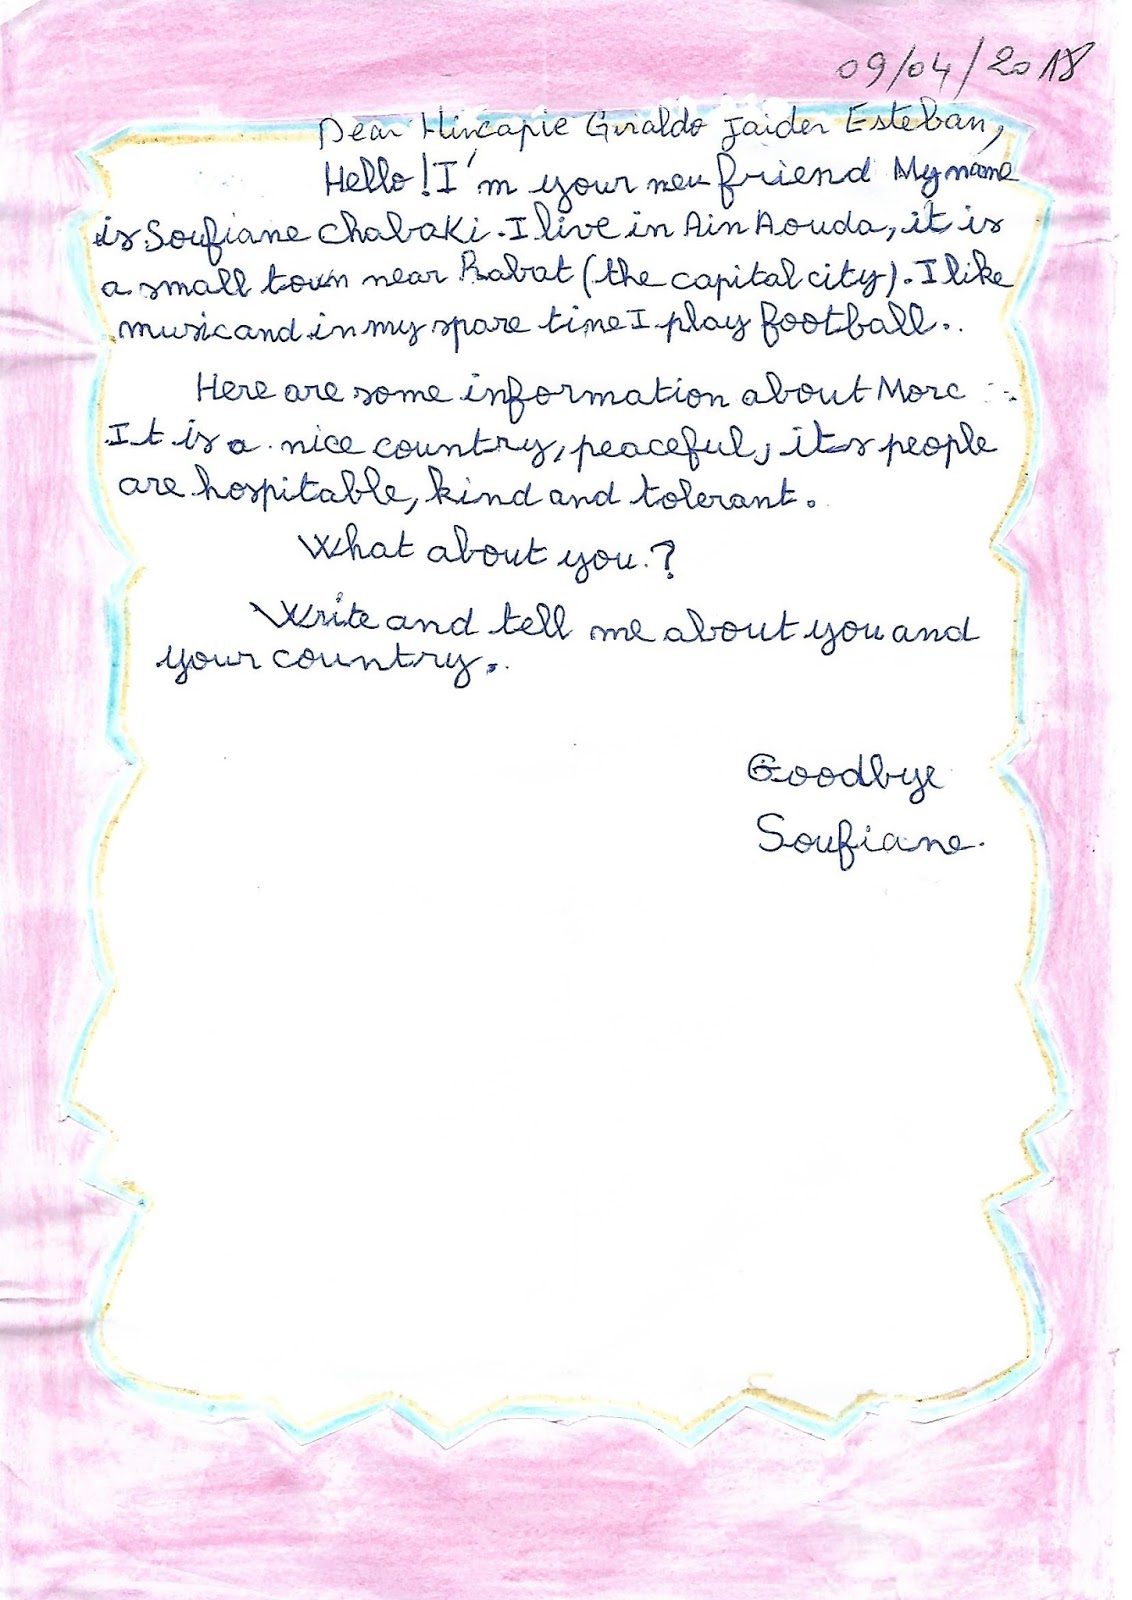 09/04/2018
Dear Hincapie Giraldo Jaider Esteban,
Hello! I'm your new friend My name
is Soufiane chabaki. I live in Ain Aouda, it is
a small town near Rabat (the capital city). I like
music and in my spare time I play football..
Here are some information about Moroc
It is a nice country, peaceful, its people
are hospitable, kind and tolerant.
What about you.?
Write and tell me about you and
your country.
Goodbye
Soufiane.